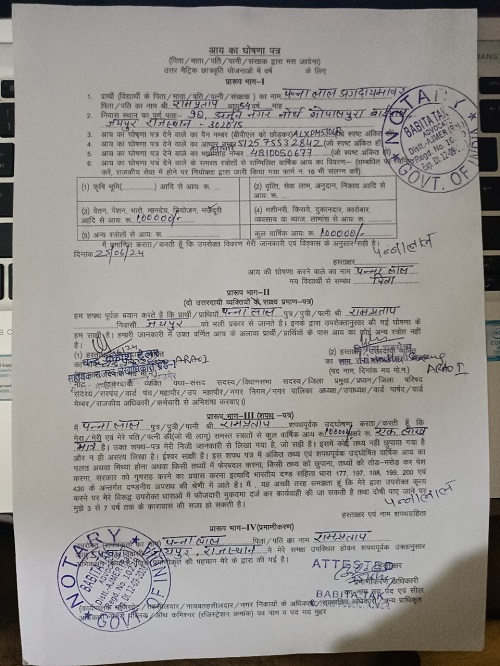 आय का घोषणा पत्र
(पिता/माता/पति/पत्नी/संरक्षक द्वारा भरा जायेगा)
उत्तर मैट्रिक छात्रवृति योजनाओं में वर्ष के लिए
प्रारूप भाग-I
1. प्रार्थी (विद्यार्थी के पिता/माता/पति/पत्नी/संरक्षक) का नाम पन्ना लाल
पिता/पति का नाम श्री रामप्रताप आयु 54 वर्ष माह
2. निवास स्थान का पूर्ण पता:- 98, नगर नोर्थ गोपालपुरा बाईपास
जयपुर राजस्थान - 302015
3. आय का घोषणा पत्र देने वाले का पैन नम्बर (बीपीएल को छोड़कर) (जो स्पष्ट अंकित
4. आय का घोषणा पत्र देने वाले का आधार नम्बर 512595532842 (जो स्पष्ट अंकित
5. आय का घोषणा पत्र देने वाले का भामाशाह नम्बर 4810050677 (जो स्पष्ट अंकित हो)
6. आय का घोषणा पत्र देने वाले के समस्त स्त्रोतों से सम्मिलित वार्षिक आय का विवरण-
करें, राजकीय सेवा में होने पर नियोक्ता द्वारा जारी किया गया फार्म न. 16 भी संलग्न करें)
(1) कृषि भूमि(........) आदि से आय: रू. ...
(2) वृत्ति, सेवा लाभ, अनुदान, निकाय आदि से आय: रू.
(3) वेतन, पेंशन, भत्ते, मानदेय, नियोजन, मजदूरी आदि से आय: रू. 100000/-
(4) मशीनरी, किराये, दुकानदार, कारोबार, व्यवसाय या ब्याज, लाभांश से आय: रू.
(5) अन्य स्त्रोतों से आय: रू.
कुल वार्षिक आय रू. 100000/-
में प्रमाणित करता/करती हूँ कि उपरोक्त विवरण मेरी जानकारी एवं विश्वास के अनुसार सही है।
दिनांक 25/06/24
पन्नालाल
हस्ताक्षर
आय की घोषणा करने वाले का नाम पन्ना लाल
मय विद्यार्थी से सम्बंध पिता
प्रारूप भाग-II
(दो उत्तरदायी व्यक्तियों के साक्ष्य प्रमाण-पत्र)
हम शपथ पूर्वक बयान करते है कि प्रार्थी/प्रार्थिया पन्ना लाल पुत्र/पुत्री/पत्नी श्री रामप्रताप
निवासी जयपुर को भली प्रकार से जानते है। इनके द्वारा उपरोक्तानुसार की गई घोषणा के
हम साक्षी है। हमारी जानकारी में उक्त वर्णित आय के अलावा प्रार्थी/प्रार्थिया के पास आय का कोई अन्य स्त्रोत नहीं
है।
(1) हस्ताक्षर
(2) हस्ताक्षर
ARAO I
(पद नाम, दिनांक मय मो.न.)
ARAO I
नोट:- उत्तरदायी व्यक्ति यथा-संसद सदस्य/विधानसभा सदस्य/जिला प्रमुख/प्रधान/जिला परिषद
सदस्य/सरपंच/वार्ड पंच/महापौर/उप महापौर/नगर निगम/नगर पालिका अध्यक्ष/उपाध्यक्ष/वार्ड पार्षद/वार्ड
मेम्बर/राजकीय अधिकारी/कर्मचारी से अभिशंषा करवाए)
प्रारूप भाग-III (शपथ -पत्र)
में पन्ना लाल पुत्र/पुत्री/पत्नी श्री रामप्रताप शपथपूर्वक उद्घोषणा करता/करती हूँ कि
मेरा/मेरी एवं मेरे पति/पत्नी की(जो भी लागू) समस्त स्त्रोतों से कुल वार्षिक आय रू. 100000/- अक्षरे रू. एक लाख
मात्र है। उक्त शपथ-पत्र मेरी निजी जानकारी से लिखा गया है, जो सही है। इसमें कोई तथ्य नहीं छुपाया गया है
और न ही असत्य लिखा है। ईश्वर साक्षी है। इस शपथ पत्र में अंकित तथ्य एवं शपथपूर्वक उद्घोषित वार्षिक आय का
गलत अथवा मिथ्या होना अथवा किसी तथ्यों में फेरबदल करना, किसी तथ्य को छुपाना, तथ्यों को तोड़-मरोड़ कर पेश
करना, सरकार को गुमराह करने का प्रयास करना इत्यादि भारतीय दण्ड संहिता धारा 177, 197, 198, 199, 200 एवं
420 के अन्तर्गत दण्डनीय अपराध की श्रेणी में आते हैं। मैं, यह अच्छी तरह समझता हूं कि मेरे द्वारा उपरोक्त कृत्य
करने पर मेरे विरूद्ध उपरोक्त धाराओं में फौजदारी मुकदमा दर्ज कर कार्यवाही की जा सकती है तथा दोषी पाए जाने पर
मुझे 3 से 7 वर्ष तक के कारावास की सजा हो सकती है।
पन्नालाल
हस्ताक्षर एवं नाम शपथग्रहिता
प्रारूप भाग-IV(प्रमाणीकरण)
पन्ना लाल पिता/पति का नाम रामप्रताप
जयपुर, राजस्थान ने मेरे समक्ष उपस्थित होकर शपथपूर्वक उक्तानुसार
की पहचान मेरे द्वारा की गई है।
ATTESTED
प्रमाणीकरण अधिकारी
BABITA TAK
NOTARY
BABITA TAK
ADVOCATE
GOVT. OF INDIA
NOTARY
BABITA TAK
GOVT. OF INDIA